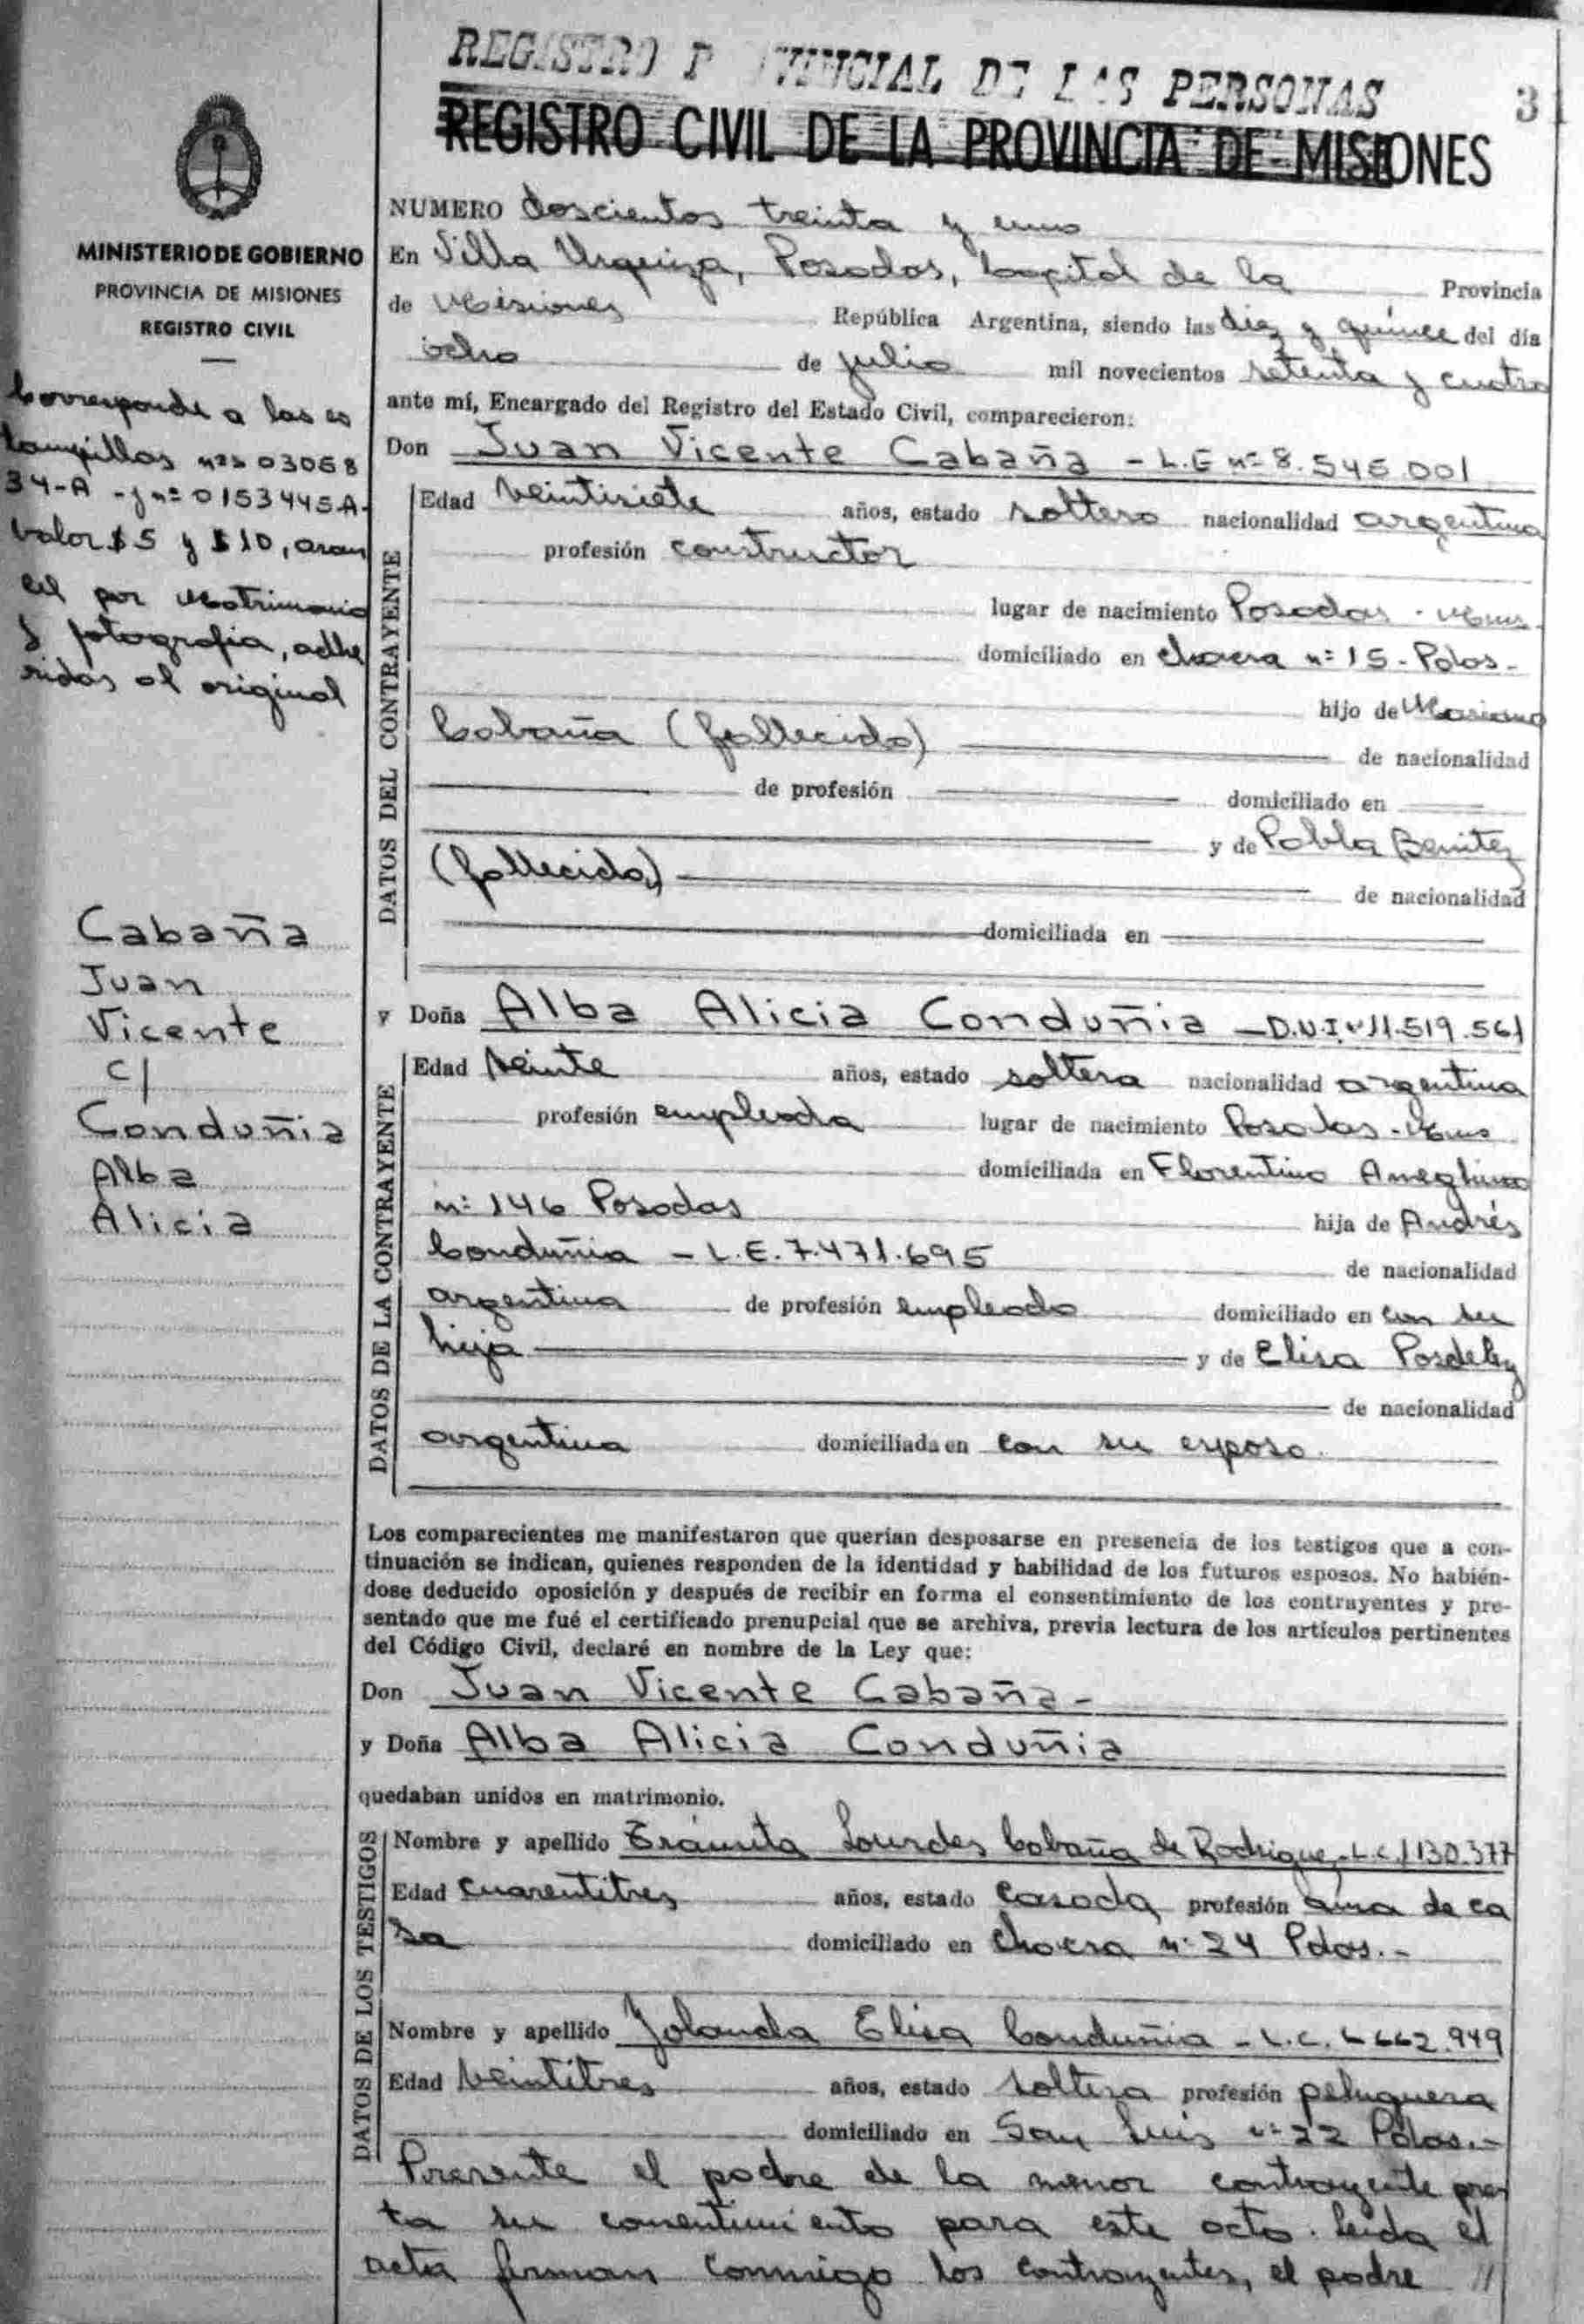 REGISTRO PROVINCIAL DE LAS PERSONAS
3
REGISTRO CIVIL DE LA PROVINCIA DE MISIONES
MINISTERIO DE GOBIERNO
PROVINCIA DE MISIONES
REGISTRO CIVIL
Corresponde a las es
tampillas nºs 03068
34-A - y nº 0153445A-
valor $5 y $10, aran
cel por Matrimonio
y fotografia, adhe
ridas al original
Cabaña
Juan
Vicente
c/
Conduñia
Alba
Alicia
NUMERO doscientos treinta y uno
En Villa Urquiza, Posadas, Capital de la Provincia
de Misiones República Argentina, siendo las diez y quince del día
ocho de julio mil novecientos setenta y cuatro
ante mí, Encargado del Registro del Estado Civil, comparecieron:
Don Juan Vicente Cabaña - L.E nº 8.546.001
DATOS DEL CONTRAYENTE
Edad veintisiete años, estado soltero nacionalidad argentina
profesión constructor
lugar de nacimiento Posadas - Mnes.
domiciliado en chacra nº 15 - Pdas -
hijo de Mariano
Cabaña (fallecido) de nacionalidad
de profesión domiciliado en
y de Pabla Benitez
(fallecida) de nacionalidad
domiciliada en
y Doña Alba Alicia Conduñia - D.N.I. nº 11.519.561
DATOS DE LA CONTRAYENTE
Edad veinte años, estado soltera nacionalidad argentina
profesión empleada lugar de nacimiento Posadas - Mnes
domiciliada en Florentino Ameghino
nº 146 Posadas hija de Andrés
Conduñia - L.E. 7.471.695 de nacionalidad
argentina de profesión empleado domiciliado en con su
hija y de Elisa
de nacionalidad
argentina domiciliada en con su esposo
Los comparecientes me manifestaron que querían desposarse en presencia de los testigos que a con-
tinuación se indican, quienes responden de la identidad y habilidad de los futuros esposos. No habién-
dose deducido oposición y después de recibir en forma el consentimiento de los contrayentes y pre-
sentado que me fué el certificado prenupcial que se archiva, previa lectura de los artículos pertinentes
del Código Civil, declaré en nombre de la Ley que:
Don Juan Vicente Cabaña -
y Doña Alba Alicia Conduñia
quedaban unidos en matrimonio.
DATOS DE LOS TESTIGOS
Nombre y apellido Lourdes Cabaña de Rodriguez - L.C. 1130.377
Edad cuarentitres años, estado casada profesión ama de ca
sa domiciliado en chacra nº 24 Pdas. -
Nombre y apellido Jolanda Elisa Conduñia - L.C. 6.662.949
Edad veintitres años, estado soltera profesión peluquera
domiciliado en San Luis nº 22 Pdas. -
Presente el padre de la menor contrayente pres
ta su consentimiento para este acto. Leida el
acta firman conmigo los contrayentes, el padre //